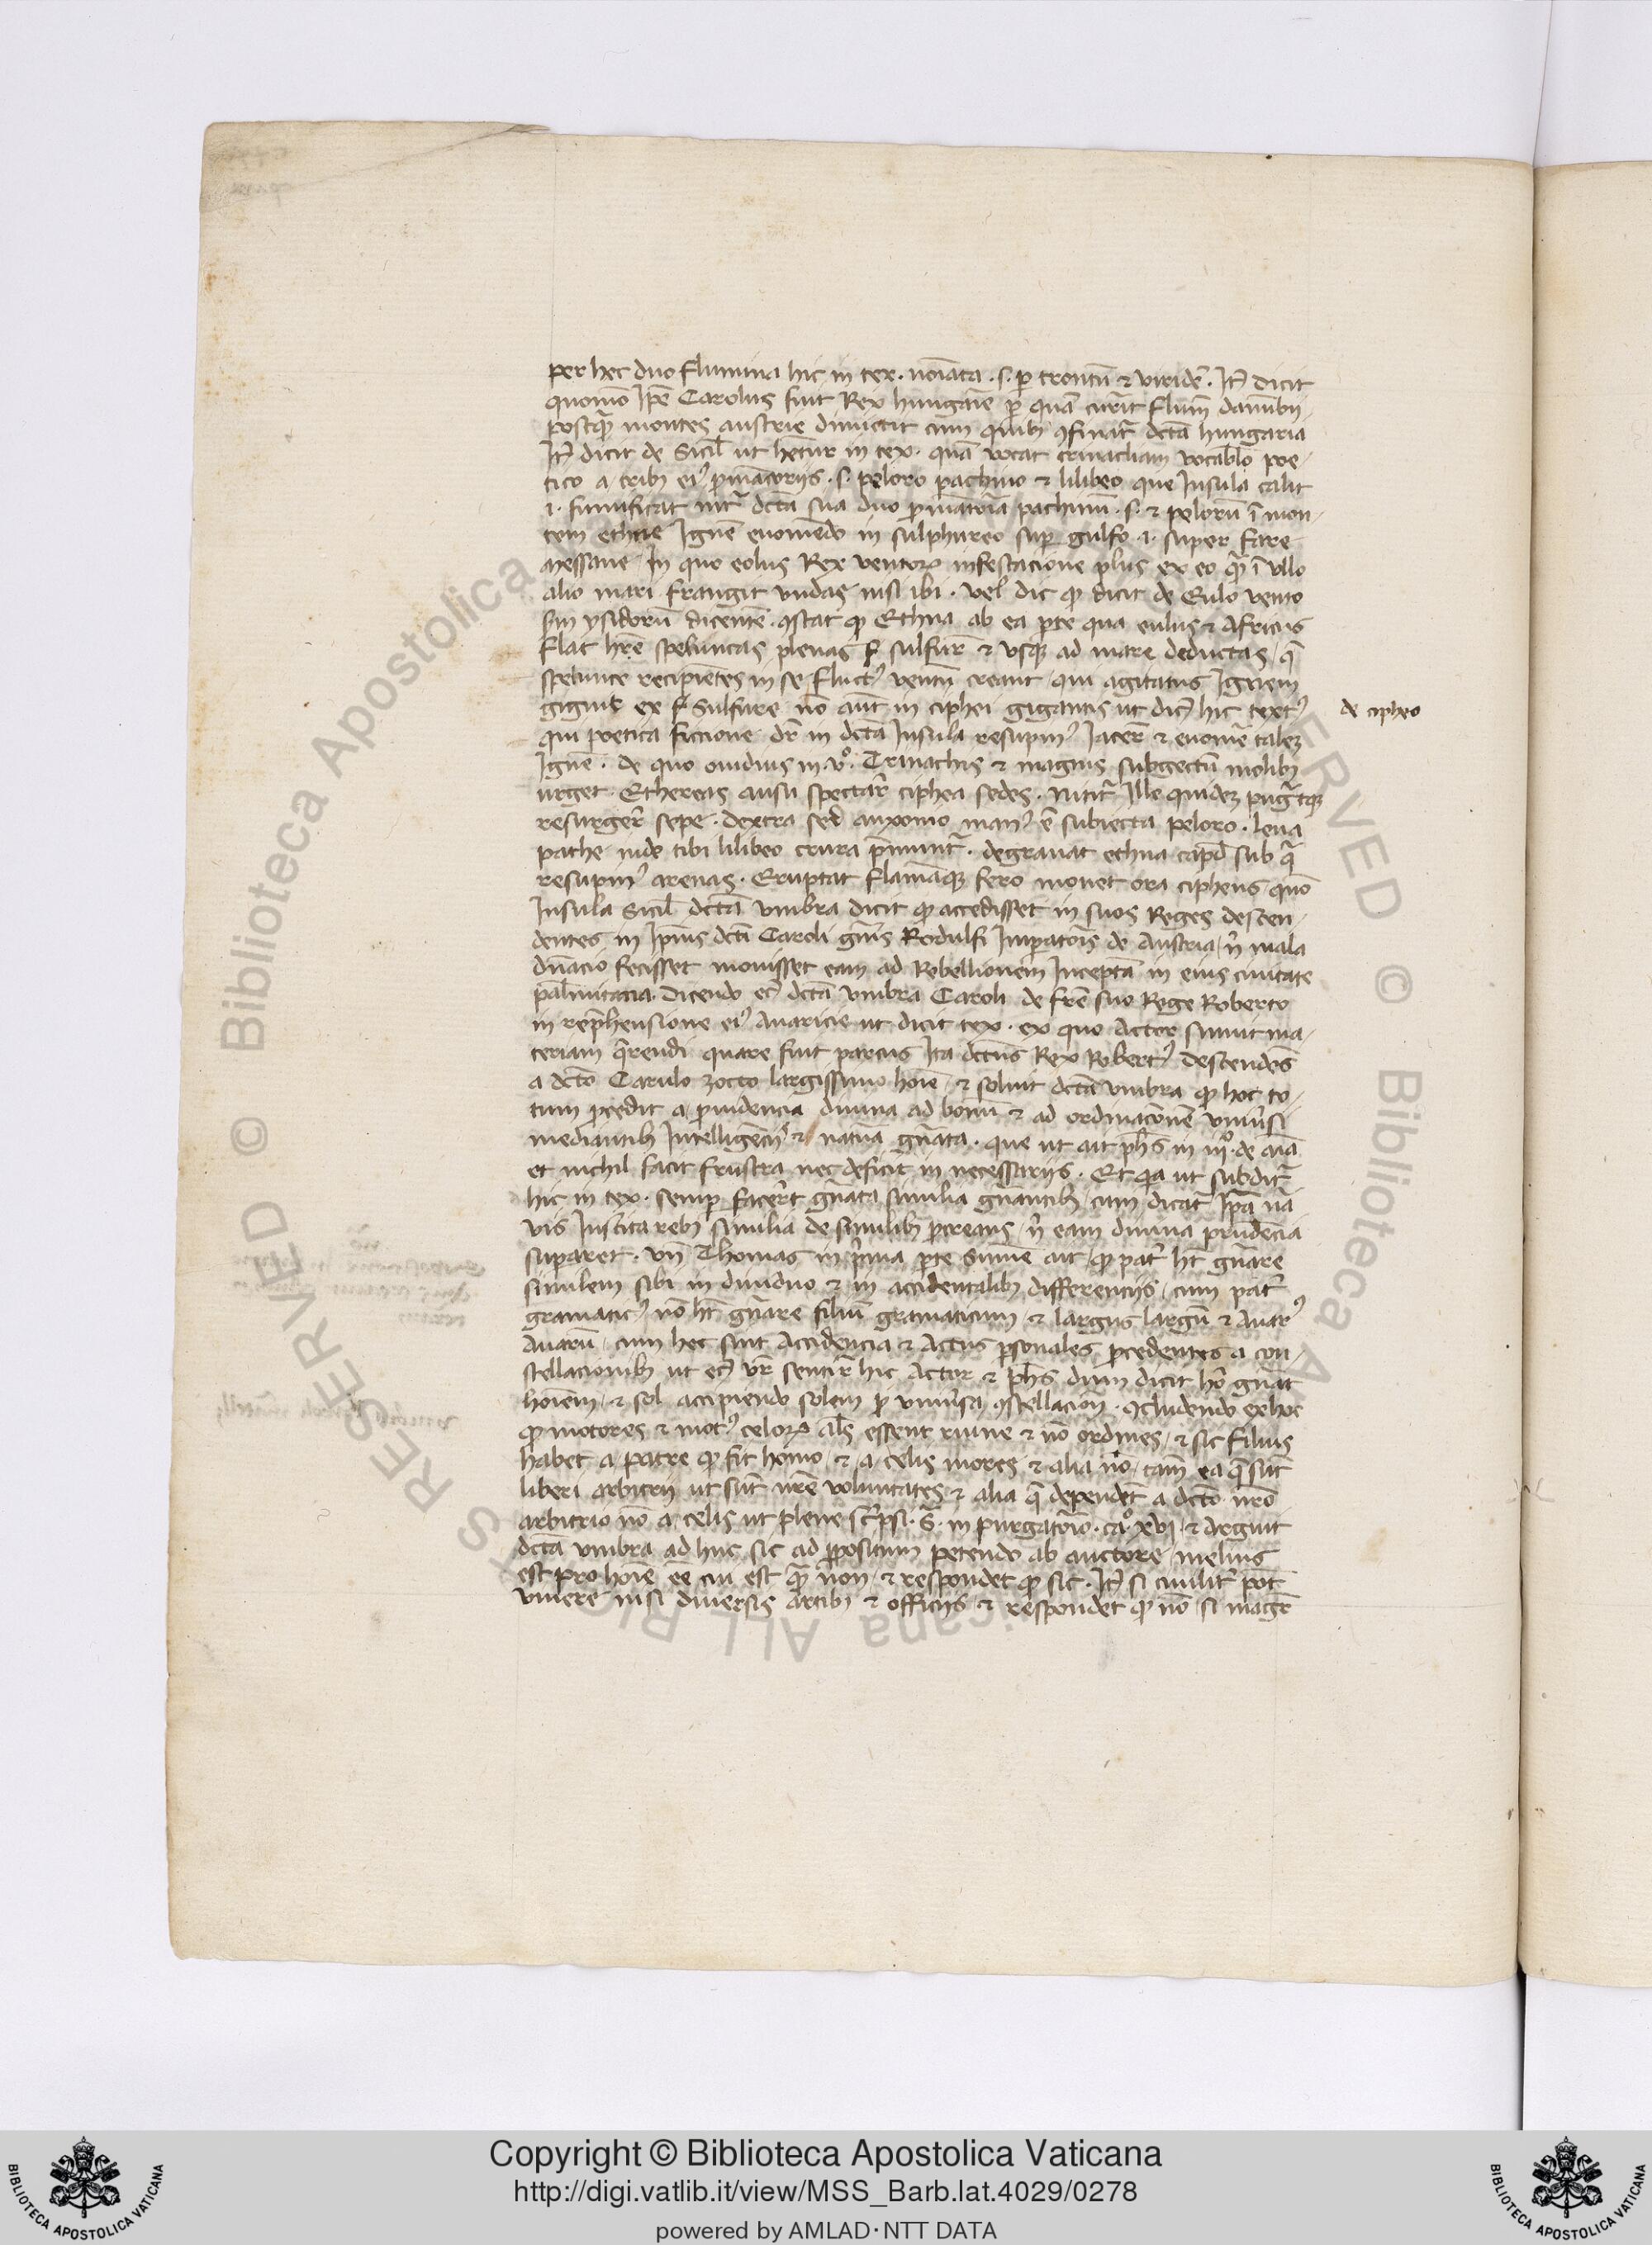 per hec duo flumina hic in tex. noiata .s. p trontu & viride. It dicit
quomo Ipe Carolus fuit Rex hungarie p qua currit flum danubij
postq montes austrie dimictit cum quib 9finat dcta hungaria
It dicit de Sicil ut hetur in tex. qua vocat trinacliam vocablo poe-
tico a trib ei9 pmatorijs .s. peloro pachino & lilibeo que Insula calit
.i. fumificat intr dcta sua duo pmatoria pachinu .s. & peloru i mon-
tem ethne Igne euomendo in sulphureo sup gulfo .i. super fare
messane In quo eolus Rex ventor infestacione plus ex eo q i ullo
alio mari frangit undas nisi ibi. vel dic q dicit de Eulo vento
sm ysidoru dicente. 9stat q Ethna ab ea pte qua eulus & Africus
flat hre speluncas plenas sulfur & usq ad mare deductas, q
spelunce recipietes in se fluct9 ventu creant qui agitatus Ignem
gignit ex sulfure no aut in ciphei gigantis ut dic hic text9
qui poetica fictione dr in dcta Insula resupin9 Iacer & euome talez
Igne. de quo ouidius in vo. Trinachis & magnis subgectu molib
urget. Ethereas ausu spectar ciphea sedes. nitit Ille quidez pugtq
resurger sepe. dextra sed auxonio man9 e subiecta peloro. leua
pathe inde tibi lilibeo crura pmunt. degrauat ethna capd sub q
resupin9 arenas. Eruptat flamaq fero mouet ora cipheus quo
Insula Sicil dcta umbra dicit q accedisset in suos Reges descen-
dentes in Ipius dcti Caroli gnis Rodulfi Impatoris de Austria, n mala
dnacio fecisset mouisset eam ad Rebellionem Incepta in eius ciuitate
palmitana. Dicendo ec dcta umbra Caroli de fre suo Rege Roberto
in rephensione ei9 Auaricie ut dicit tex. ex quo Actor sumit ma-
teriam qrendi quare fuit parcus Ita dctus Rex Robert9 descendes
a dcto Carulo zotto largissimo hoie & soluit dcta umbra q hoc to-
tum pcedit a puidencia diuina ad bonu & ad ordinacone uniusi
mediantib Intelligencijs & natura gnata. que ut ait phs in iijo. de aia
et nichil facit frustra nec deficit in necessarijs. Et qa ut subdit
hic in tex. semp facert gnata similia gnantib, cum dicat Ipa na
vis Insita reb similia de similib pcreans, n eam diuina prudecia
suparet. Un Thomas in prima pte Summe ait, q pat ht gnare
similem sibi in diuiduo & in accidentalib differentijs, cum pat
gramatic9 no ht gnare filiu gramaticum, & largus largu & Auar9
Auaru, cum hec sint Accidencia & Actus psonales pcedentes a con-
stellacionib ut ec vr sentir hic Actor & phs dum dicit ho gnat
hoiem, & sol accipiendo solem p uniusa 9stellacion. 9cludendo ex hoc
q motores & mot9 celor als essent ruine & no ordines, & sic filius
habet a patre q sit homo, & a celis mores & alia no, tam ea q sut
liberi arbitrij ut sut nre voluntates & alia q dependet a dcto nro
arbitrio no a celis ut plene scripsi .S. in purgatorio. cao. xvj. & Arguit
dcta umbra ad huc sic ad ppositum petendo ab auctore, melius
est pro hoie ee ciui est q non, & respondet q sic. It si ciuilit pot
viuere nisi diuersis artib & officijs & respondet q no si magr
de cipheo
Copyright © Biblioteca Apostolica Vaticana
http://digi.vatlib.it/view/MSS_Barb.lat.4029/0278
powered by AMLAD·NTT DATA